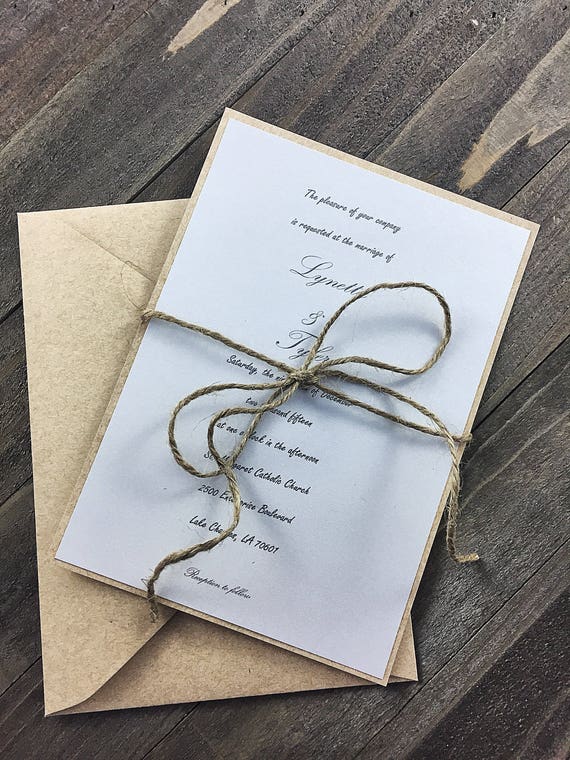 The pleasure of your company
is requested at the marriage of
Lynett
&
Tyler
Saturday, the
of December
two thousand fifteen
at one o'clock in the afternoon
St. Margaret Catholic Church
2500 Enterprise Boulevard
Lake Charles, LA 70601
Reception to follow